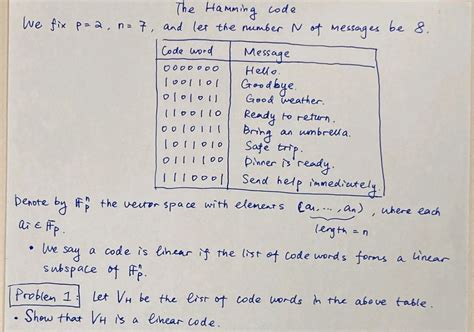 The Hamming code
We fix p=2, n=7, and let the number N of messages be 8.
Code word | Message
0000000 | Hello.
1001101 | Goodbye.
0101011 | Good weather.
1100110 | Ready to return.
0010111 | Bring an umbrella.
1011010 | Safe trip.
0111100 | Dinner is ready.
1110001 | Send help immediately.
Denote by 𝔽ₚⁿ the vector space with elements (a₁, ..., aₙ), where each
length = n
aᵢ ∈ 𝔽ₚ.
• We say a code is linear if the list of code words forms a linear
subspace of 𝔽ₚⁿ.
Problem 1: Let V_H be the list of code words in the above table.
• Show that V_H is a linear code.